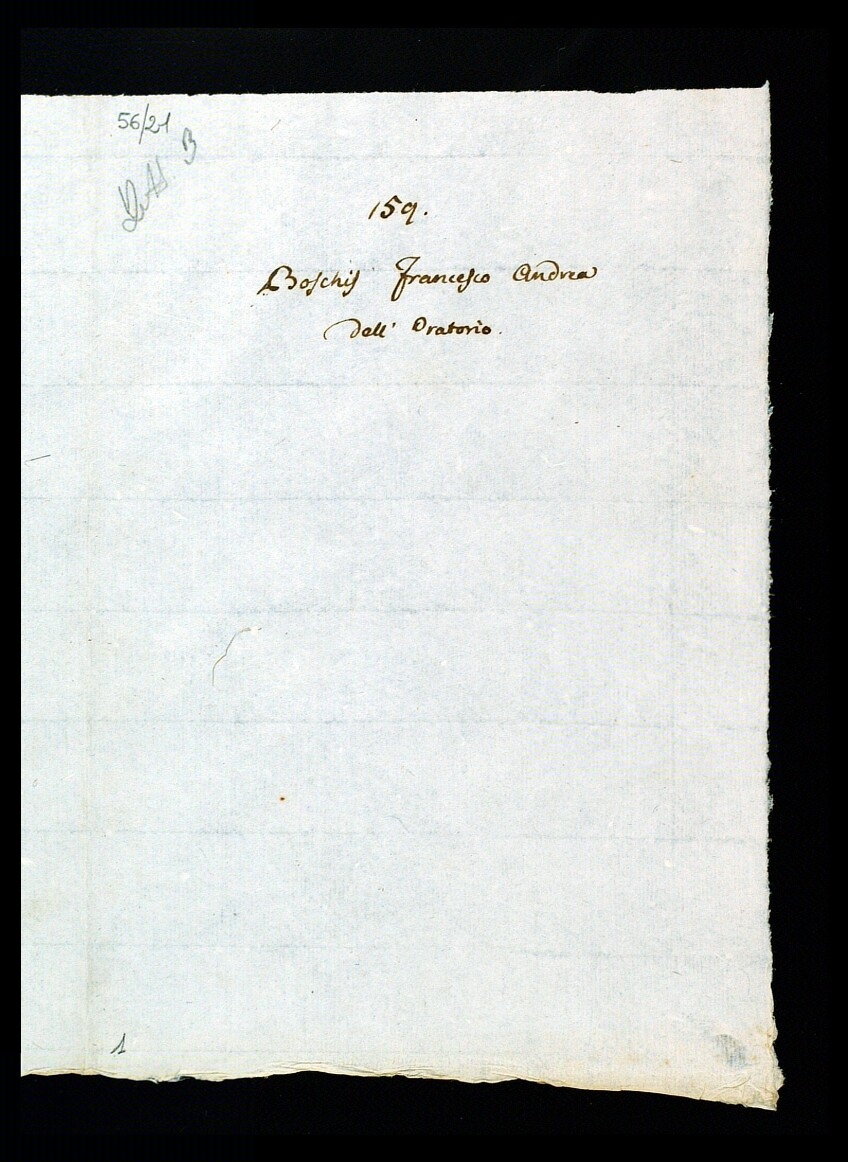 56/21
Lett. B
159.
Boschis Francesco Andrea
Dell' Oratorio.
1